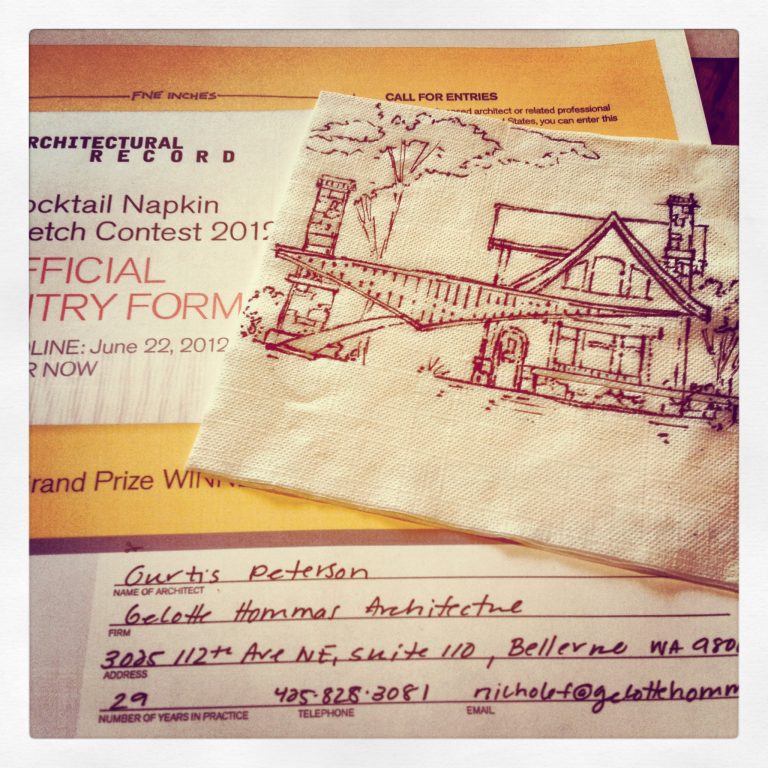 FNE INCHES
CALL FOR ENTRIES
architect or related professional
States, you can enter this
RCHITECTURAL
RECORD
ocktail Napkin
etch Contest 2012
FFICIAL
NTRY FORM
LINE: June 22, 2012
R NOW
rand Prize WINN
Curtis Peterson
NAME OF ARCHITECT
Gelotte Hommas Architecture
FIRM
3025 112th Ave NE, Suite 110, Bellevue WA 980
ADDRESS
29 425.828.3081 nicholef@gelottehomm
NUMBER OF YEARS IN PRACTICE TELEPHONE EMAIL